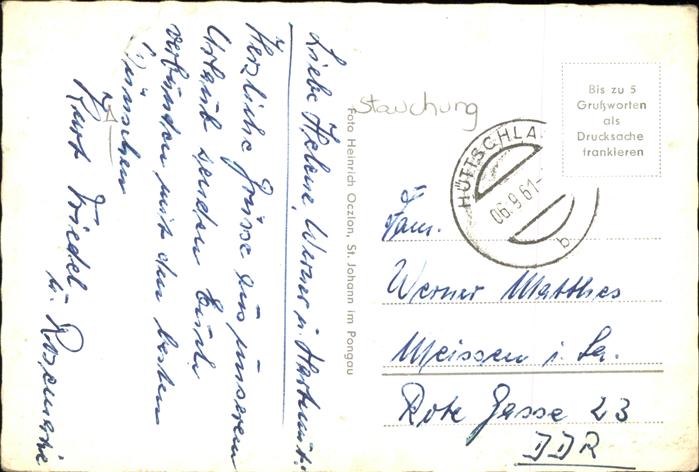 Liebe Helene, Werner u. Hartmut!
Herzliche Grüsse aus unserem
Urlaub senden Euch
verbunden mit den besten
Wünschen
Kurt Friedel
u. Rosemarie
Foto Heinrich Oczlon, St. Johann im Pongau
Stauchung
HÜTTSCHLA
06.9.61-
b
Bis zu 5
Grußworten
als
Drucksache
frankieren
Fam.
Werner Matthes
Meissen i. Sa.
Rote Gasse 23
DDR